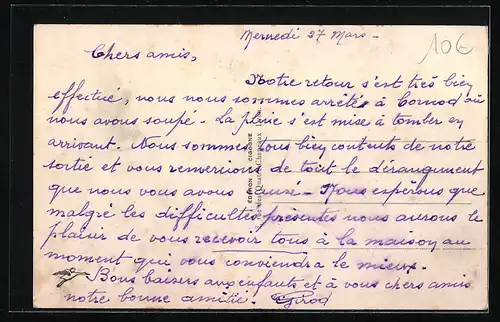 Mercredi 27 Mars -
10€
Chers amis,
Notre retour s'est très bien
effectué, nous nous sommes arrêtés à Cornod où
nous avons soupé - La pluie s'est mise à tomber en
arrivant. Nous sommes tous bien contents de notre
sortie et vous remercions de tout le dérangement
que nous vous avons causé - Nous espérons que
malgré les difficultés présentes nous aurons le
plaisir de vous recevoir tous à la maison au
moment qui vous conviendra le mieux.
Bons baisers aux enfants et à vous chers amis
notre bonne amitié. Girod
EDITION CIGOGNE